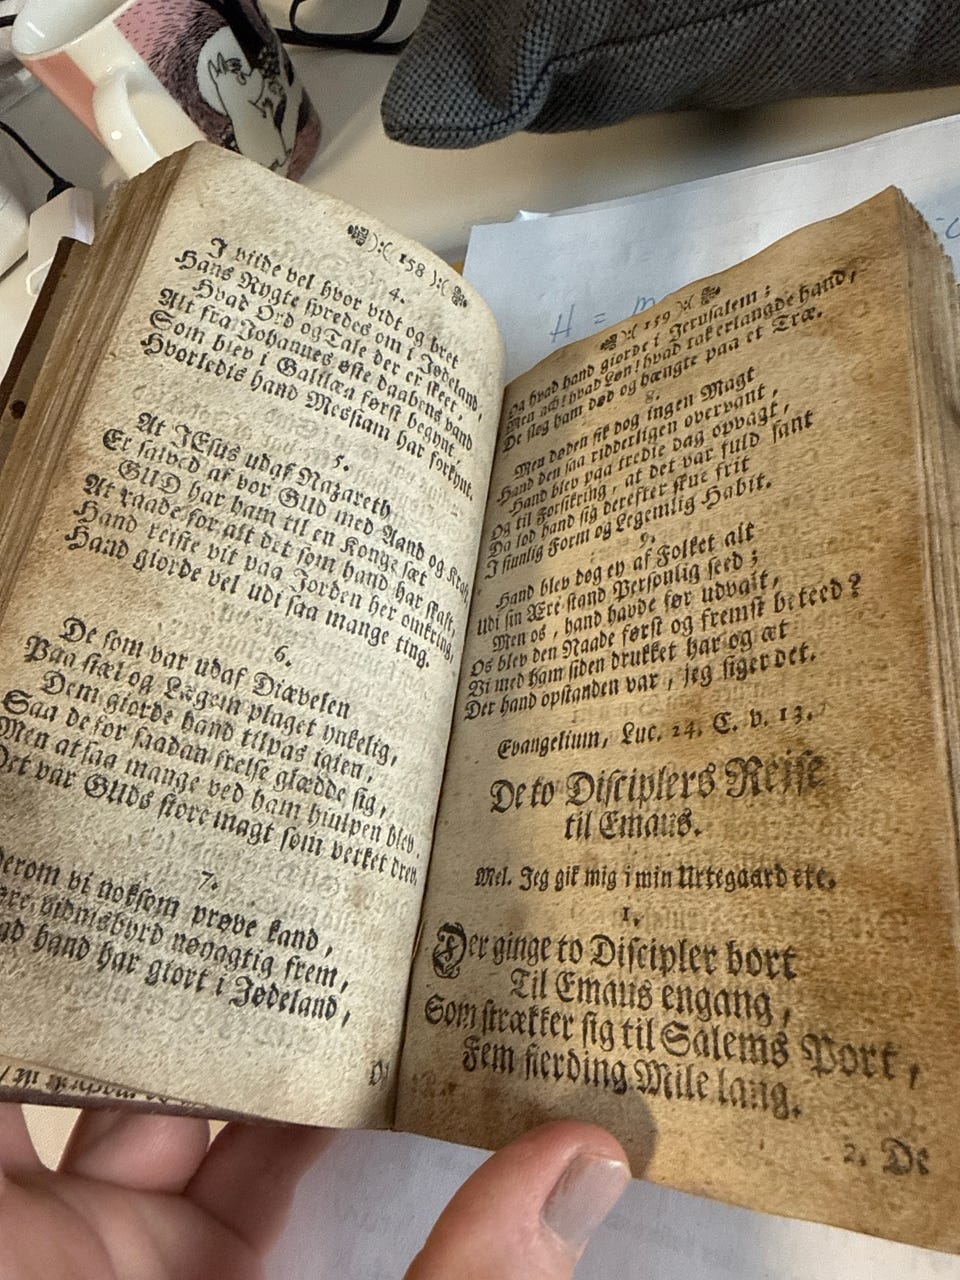 ):( 158 ):(
4.
I viide vel hvor vidt og bret
Hans Rygte spredes om i Jødeland,
Hvad Ord og Tale der er skeet,
Alt fra Johannes øste daabens vand
Som blev i Galilæa først begynt,
Hvorledis hand Messiam har forkynt.
5.
At JEsus udaf Nazareth
Er salved af vor GUD med Aand og Kraft,
GUD har ham til en Konge sæt
At raade for alt det som hand har skaft,
Hand reiste vit paa Jorden her omkring,
Hand giorde vel udi saa mange ting.
6.
De som var udaf Diævelen
Paa siæl og Legem plaget ynkelig,
Dem giorde hand tilpas igien,
Saa de for saadan frelse glædde sig,
Men at saa mange ved ham hiulpen blev,
Det var GUds store magt som verket drev.
7.
Derom vi noksom prøve kand,
vidnisbyrd nøyagtig frem,
hvad hand har giort i Jødeland,
Og
):( 159 ):(
Og hvad hand giorde i Jerusalem;
Men ach! hvad Løn! hvad tak erlangde hand,
De slog ham død og hængte paa et Træ.
8.
Men døden fik dog ingen Magt
Hand den saa ridderligen overvant,
Hand blev paa tredie dag opvagt,
Og til Forsikring, at det var fuld sant
Da lod hand sig derefter skue frit
I siunlig Form og Legemlig Habit.
9.
Hand blev dog ey af Folket alt
Udi sin Ære stand Personlig seed;
Men os, hand havde før udvalt,
Os blev den Naade først og fremst beteed?
Vi med ham siden drukket har og æt
Der hand opstanden var, jeg siger det.
Evangelium, Luc. 24. C. v. 13.
De to Disciplers Reise
til Emaus.
Mel. Jeg gik mig i min Urtegaard etc.
1.
Der ginge to Discipler bort
Til Emaus engang,
Som strækker sig til Salems Port,
Fem fierding Mile lang.
2. De
H =